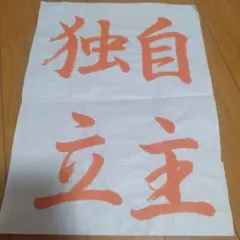 自主
独立